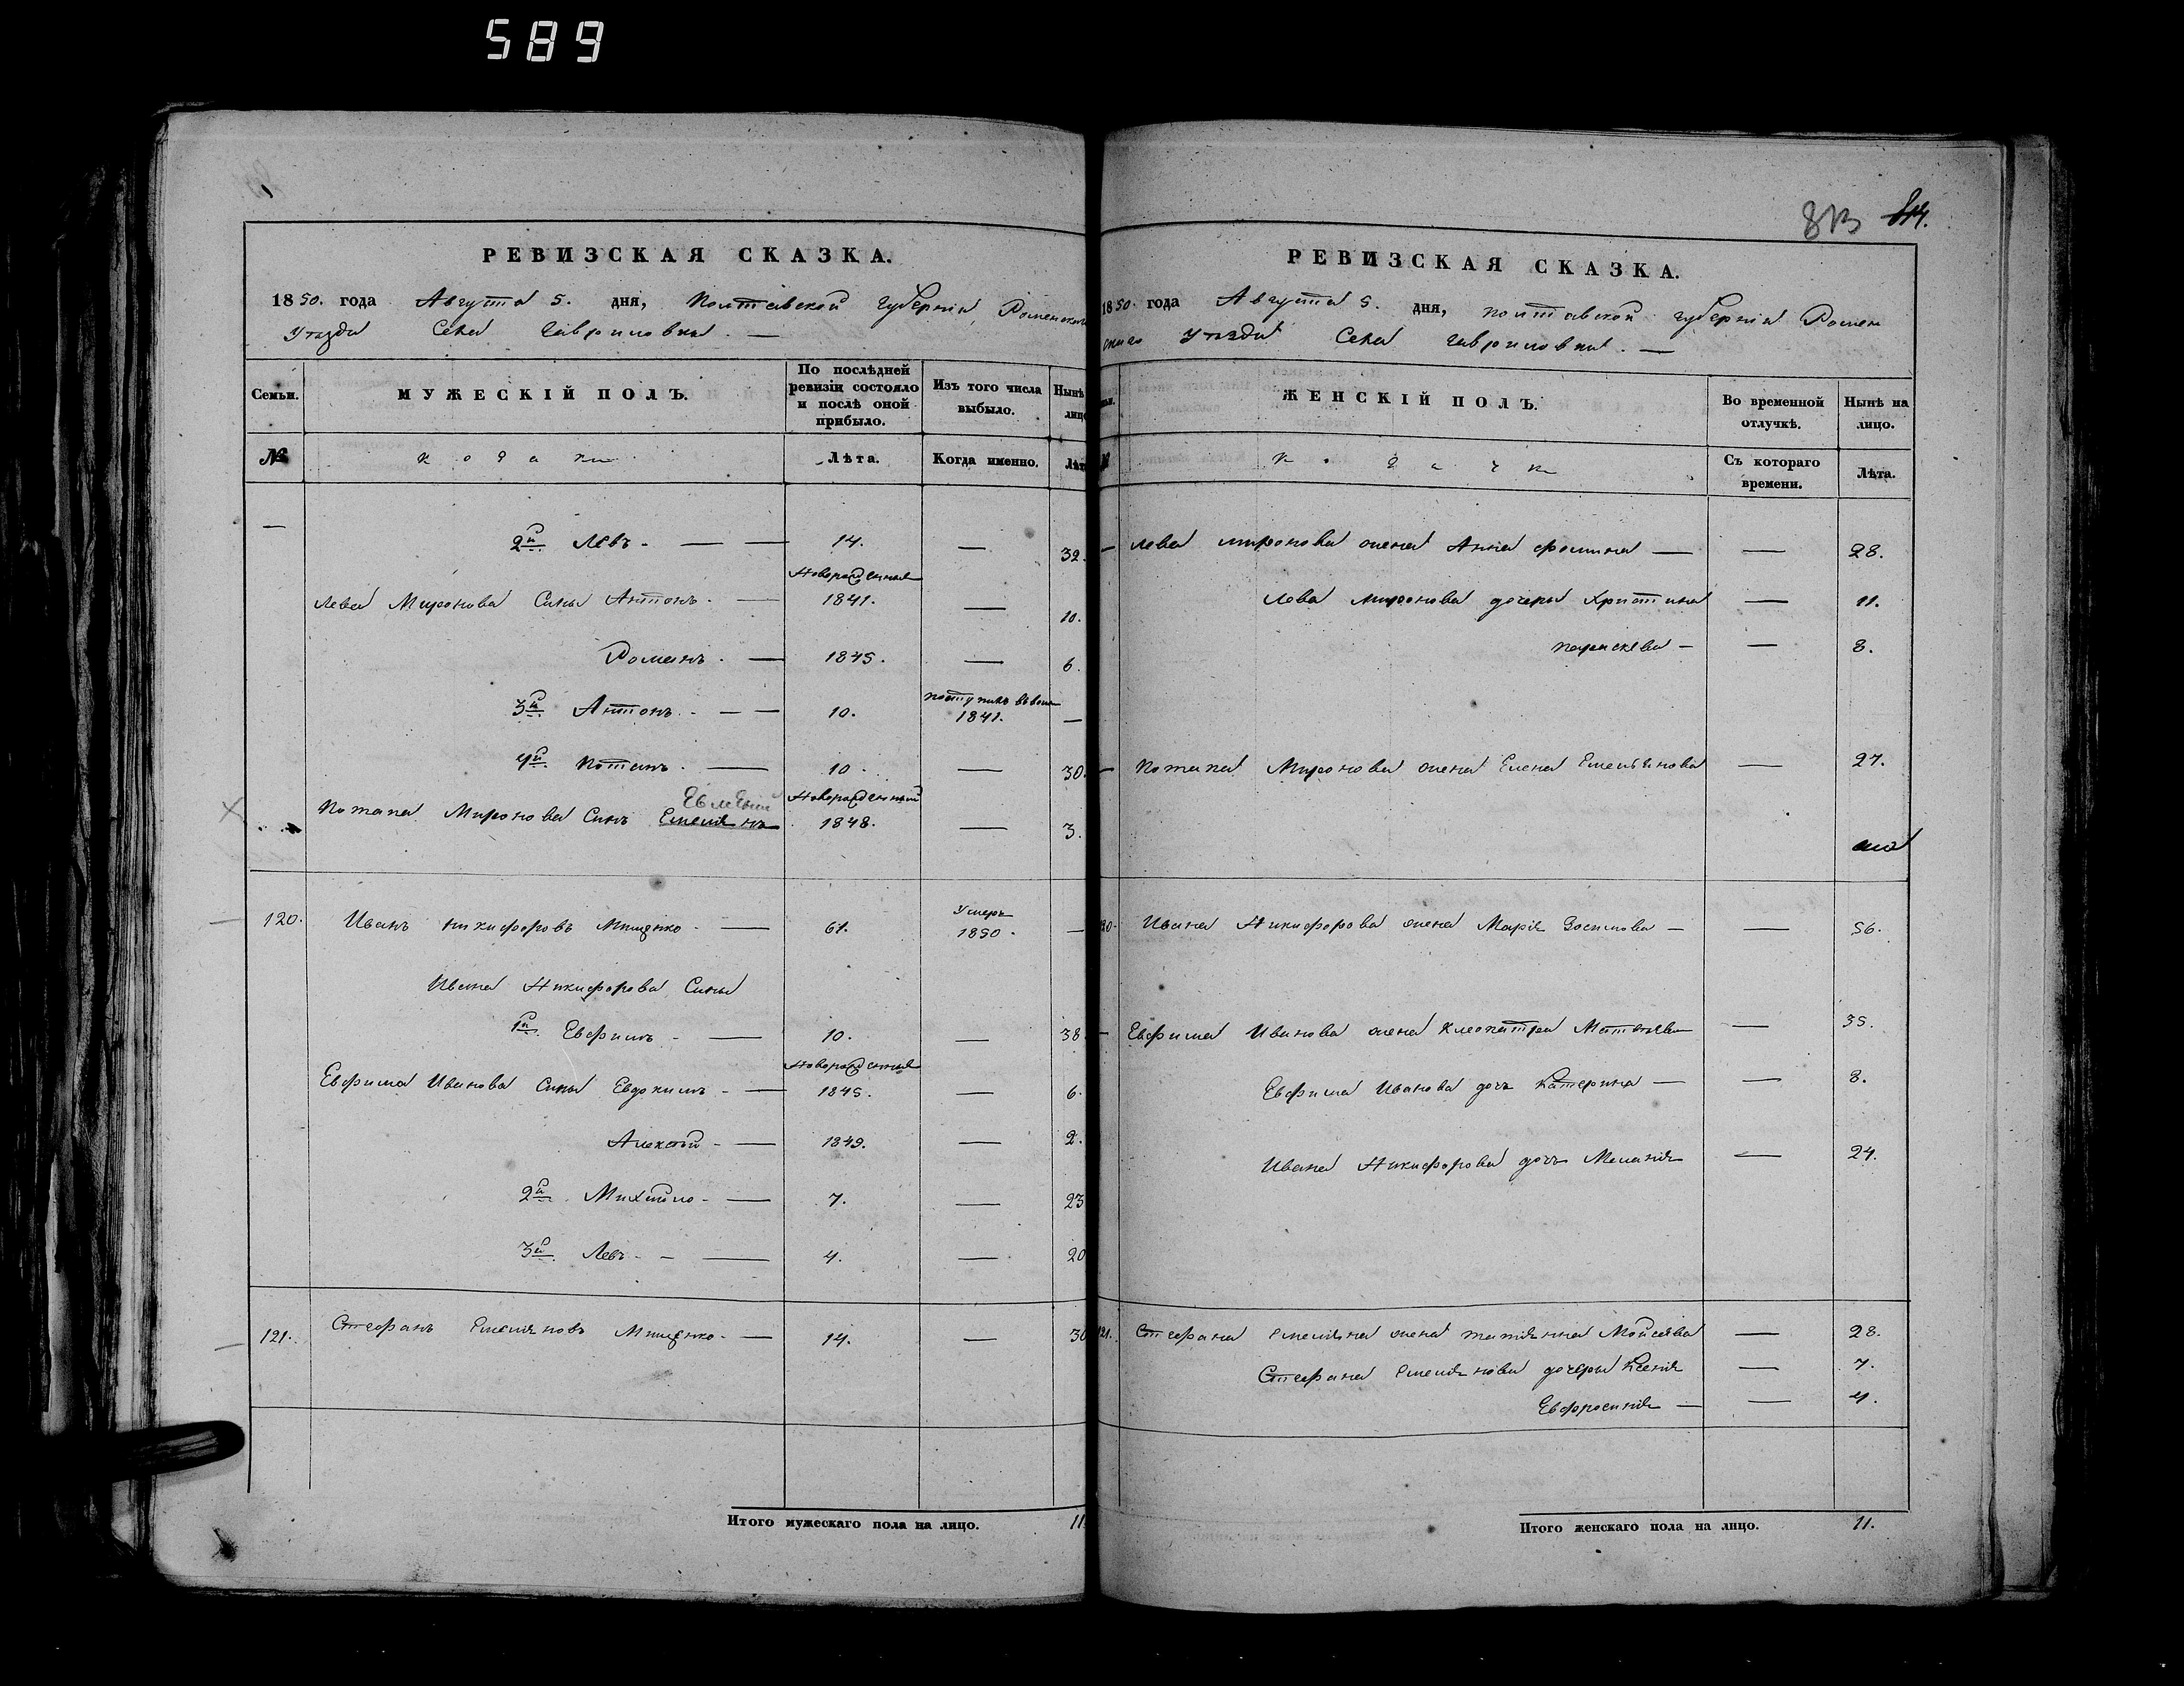 589
РЕВИЗСКАЯ СКАЗКА.
1850. года Августа 5. дня, Полтавской Губерніи Роменскаго
Уѣзда Села Гавриловки. —
Семьи. МУЖЕСКІЙ ПОЛЪ. По послѣдней ревизіи состояло и послѣ оной прибыло. Изъ того числа выбыло. Нынѣ лицо
№ козаки Лѣта. Когда именно. Лѣт
— 2й Левъ - — — 14. — 32.
Новорожденные
Лева Миронова Сины Антонъ. — 1841. — 10.
Романъ. — 1845. — 6.
3й Антонъ. - — — 10. поступилъ въ 1841. —
4й Потапъ. — 10. — 30.
Евмений Новорожденный
Потапа Миронова Синъ Емелянъ 1848. — 3.
120. Иванъ Никифоровъ Мищенко. — 61. Умеръ 1850. —
Ивана Никифорова Сины
1й Евфимъ - — 10. — 38
Новорожденные
Евфима Иванова Сины Евдокимъ - — 1845. — 6.
Алексѣй - — 1849. — 2.
2й Михайло - — 7. — 23
3й Левъ - - — 4. — 20
121. Стефанъ Емеляновъ Мищенко. — 14. — 30
Итого мужескаго пола на лицо. 11
813 814.
РЕВИЗСКАЯ СКАЗКА.
1850. года Августа 5. дня, Полтавской Губерніи Ромен
скаго Уѣзда Села Гавриловки. —
ЖЕНСКІЙ ПОЛЪ. Во временной отлучкѣ. Нынѣ на лицо.
Съ котораго времени. Лѣта.
— Лева Миронова жена Анна Фомина — — 28.
Лева Миронова дочери Христина — 11.
Параскева — — 8.
— Потапа Миронова жена Елена Емельянова — 27.
120. Ивана Никифорова жена Марія Зосимова — — 56.
— Евфима Иванова жена Клеопатра Матвѣева — 35.
Евфима Иванова дочь Катерина — — 8.
Ивана Никифорова дочь Меланія — 24.
121. Стефана Емеляна жена Татіянна Мойсеева — 28.
Стефана Емелянова дочери Ксенія — 7.
Евфросинія — — 4.
Итого женскаго пола на лицо. 11.